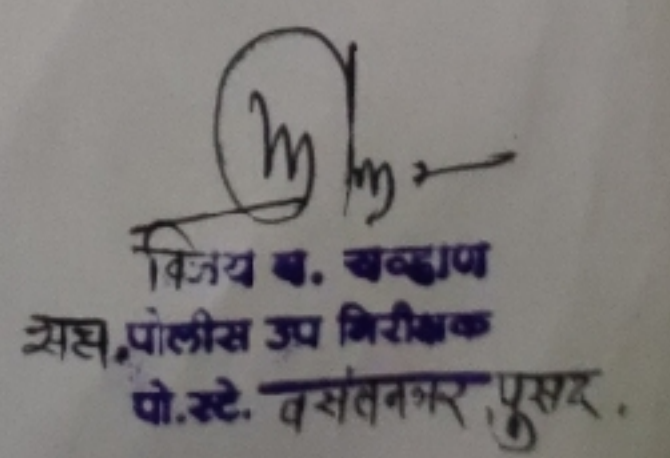 विजय ब. चव्हाण
सहा. पोलीस उप निरीक्षक
पो.स्टे. वसंतनगर, पुसद.